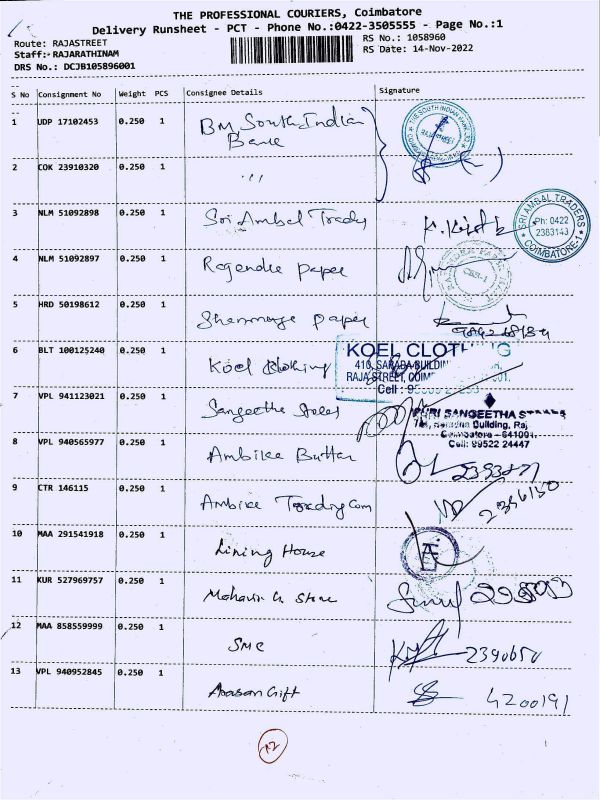 THE PROFESSIONAL COURIERS, Coimbatore
Delivery Runsheet - PCT - Phone No.:0422-3505555 - Page No.:1
Route: RAJASTREET
RS No.: 1058960
Staff:- RAJARATHINAM
RS Date: 14-Nov-2022
DRS No.: DCJB105896001
S No Consignment No Weight PCS Consignee Details Signature
1 UDP 17102453 0.250 1 BM South Indian
Bank
2 COK 23910320 0.250 1 ,,
3 NLM 51092898 0.250 1 Sri Ambal Trades
SRI AMBAL TRADERS
Ph: 0422
2383143
COIMBATORE-1
4 NLM 51092897 0.250 1 Rajendra paper
5 HRD 50198612 0.250 1 paper
6 BLT 100125240 0.250 1 Koel Clothing
KOEL CLOTHING
RAJA STREET,
Cell :
7 VPL 941123021 0.250 1 Sangeetha
SHRI SANGEETHA
Building, Raj
Coimbatore - 641001.
Cell: 99522 24447
8 VPL 940565977 0.250 1 Ambika Button
9 CTR 146115 0.250 1 Ambika Trading Com
2396150
10 MAA 291541918 0.250 1 Lining House
11 KUR 527969757 0.250 1 Store
12 MAA 858559999 0.250 1 SMC
2390650
13 VPL 940952845 0.250 1 Gift
4200191
12